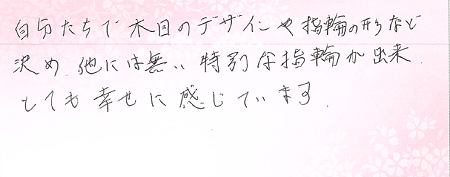 自分たちで木目のデザインや指輪の形など
決め、他には無い特別な指輪が出来、
とても幸せに感じています。